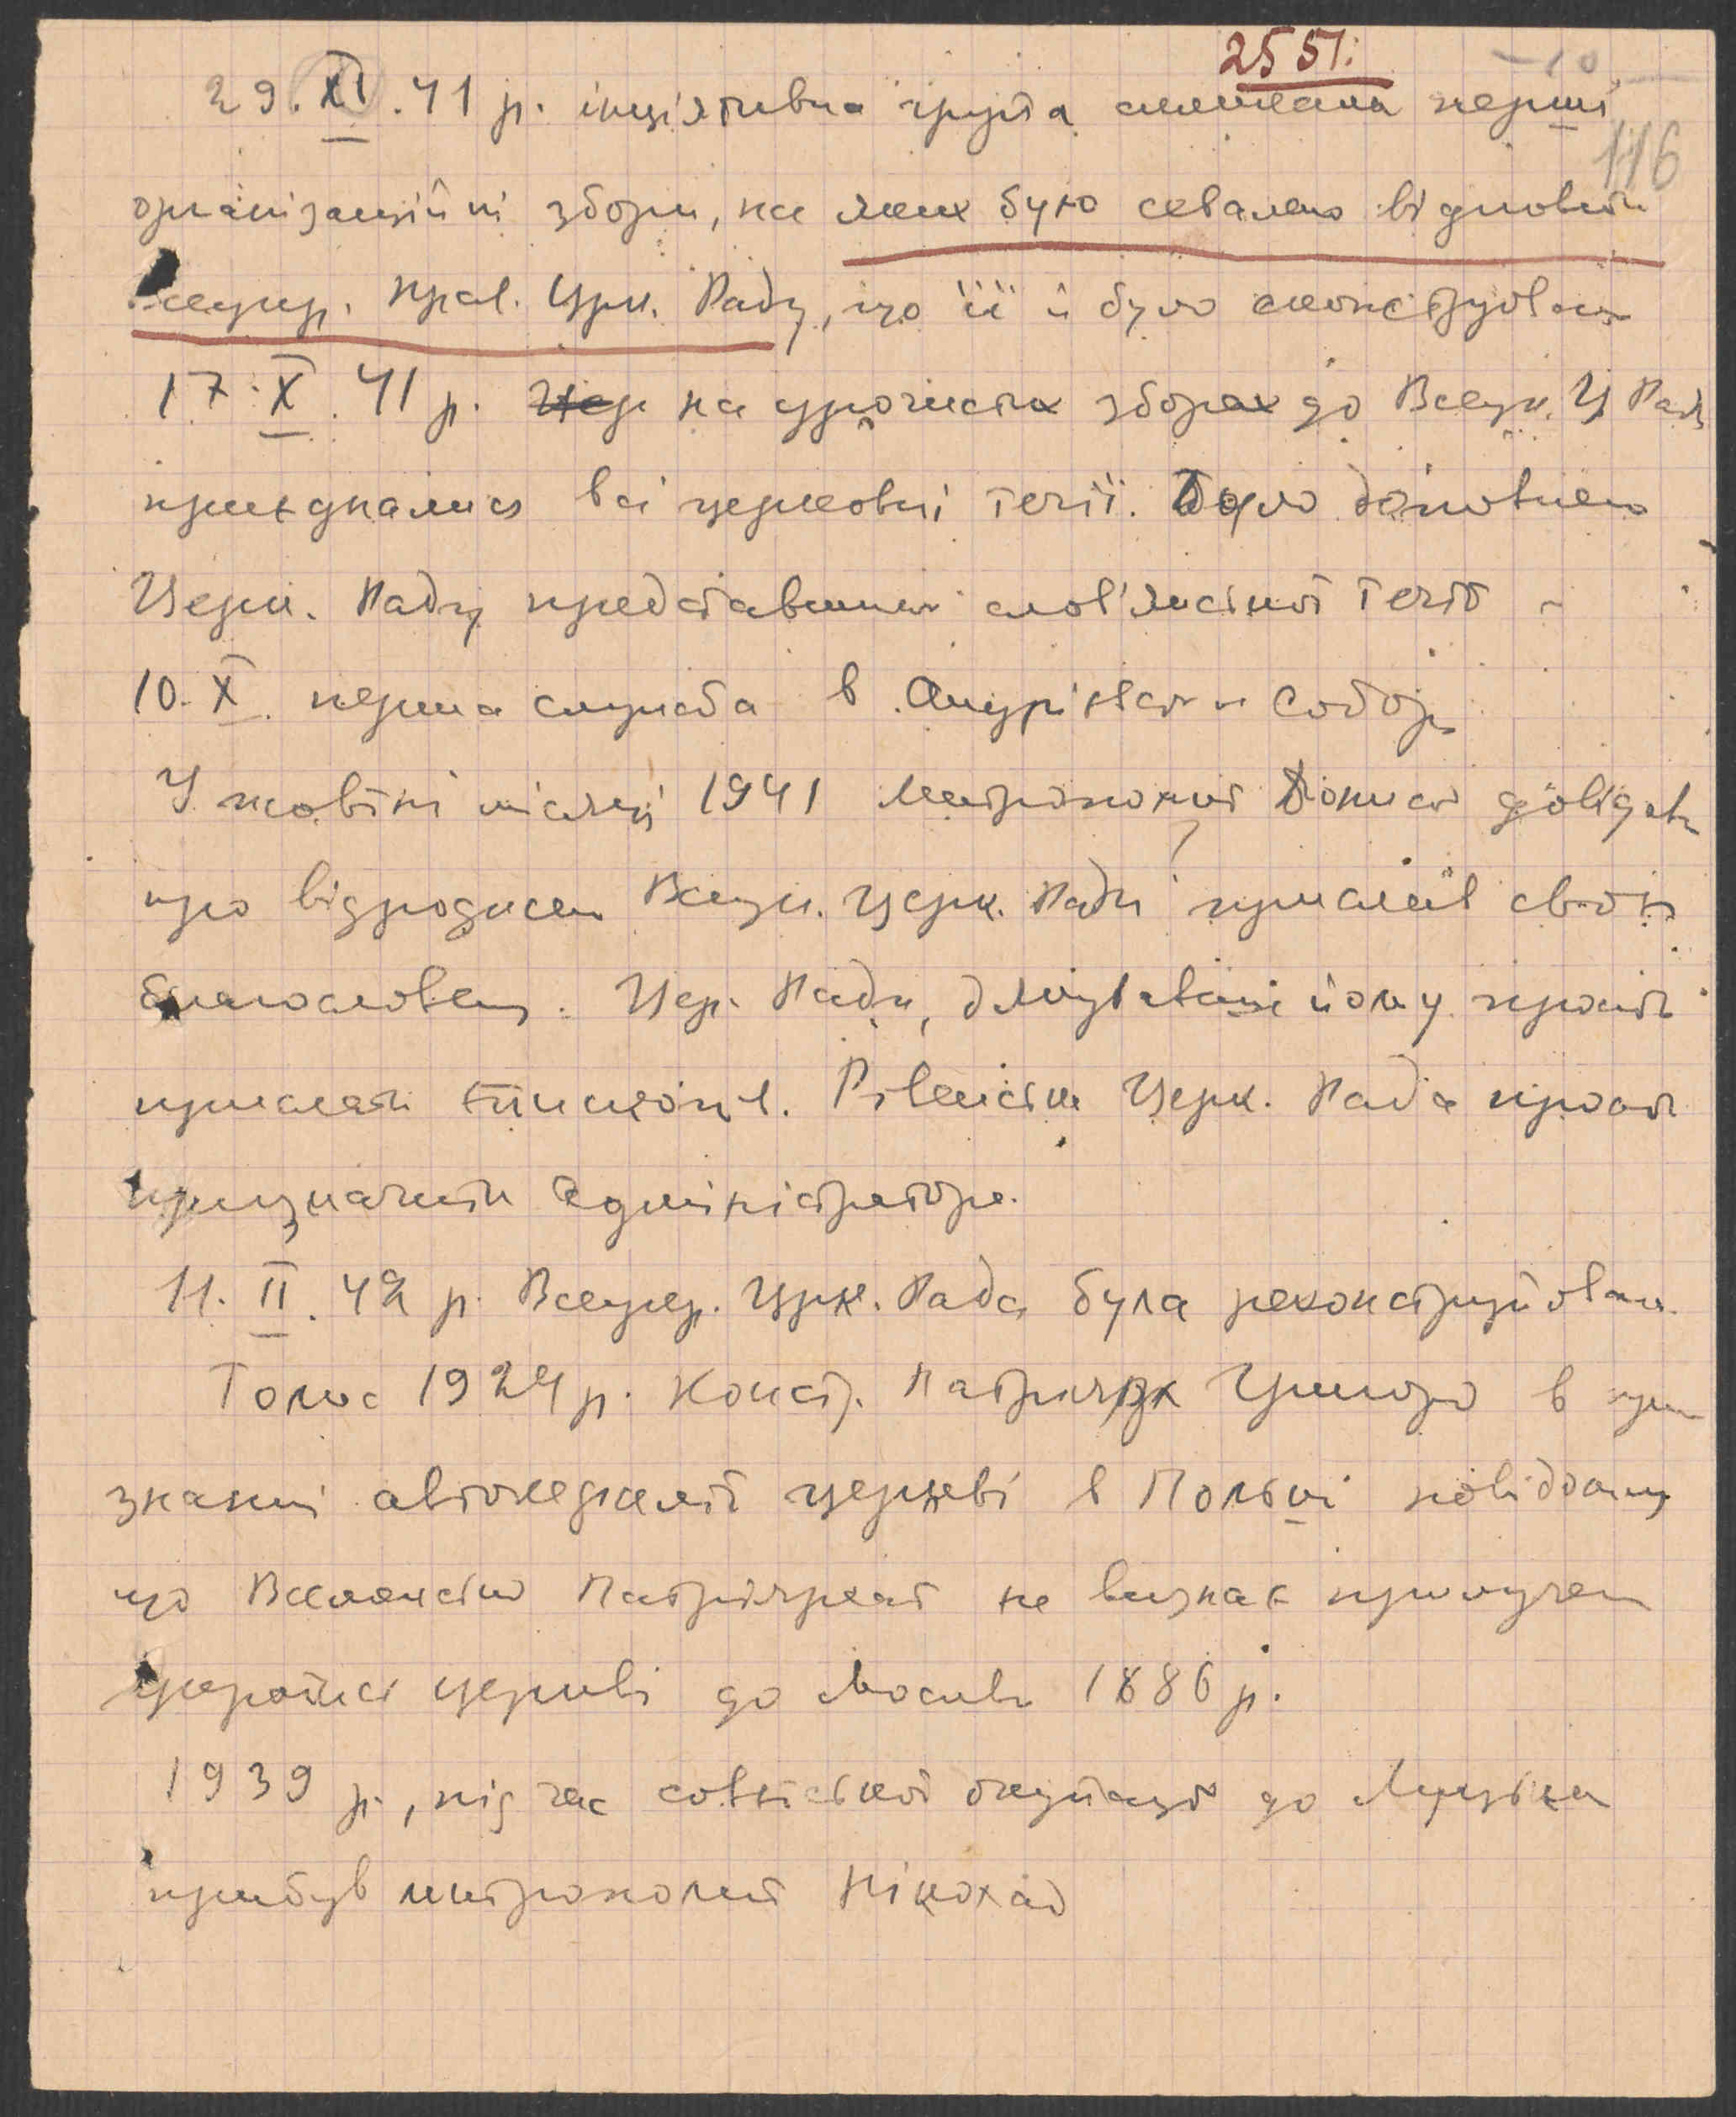 2551.
- 10 -
29. XI. 41 р. ініціятивна група скликала перші
116
організаційні збори, на яких було ухвалено відновити
Всеукр. Прав. Церк. Раду, що її й було сконструовано
17. X. 41 р. на урочистих зборах до Всеук. Ц Ради
приєднались всі церковні течії. Було доповнено
Церк. Раду представниками слов'янської течії -
10. X. перша служба в Андріївськ. Соборі
У жовтні місяці 1941 Митрополит Діонисій довідавш.
про відроджен. Всеук. Церк. Ради прислав своє
благословення. Цер. Рада, дякувавши йому просить
прислати єпископів. Рівенська Церк. Рада просить
призначити адміністратора.
11. II. 42 р. Всеукр. Црк. Рада була реконструйована.
Томос 1924 р. Конст. Патриярх Григорій в при
знанні автокефалії церкві в Польщі повідомив
що Вселенський Патріярхат не визнає прилучення
української церкви до Москви 1686 р.
1939 р., під час совітської окупації до Луцька
прибув митрополит Николай